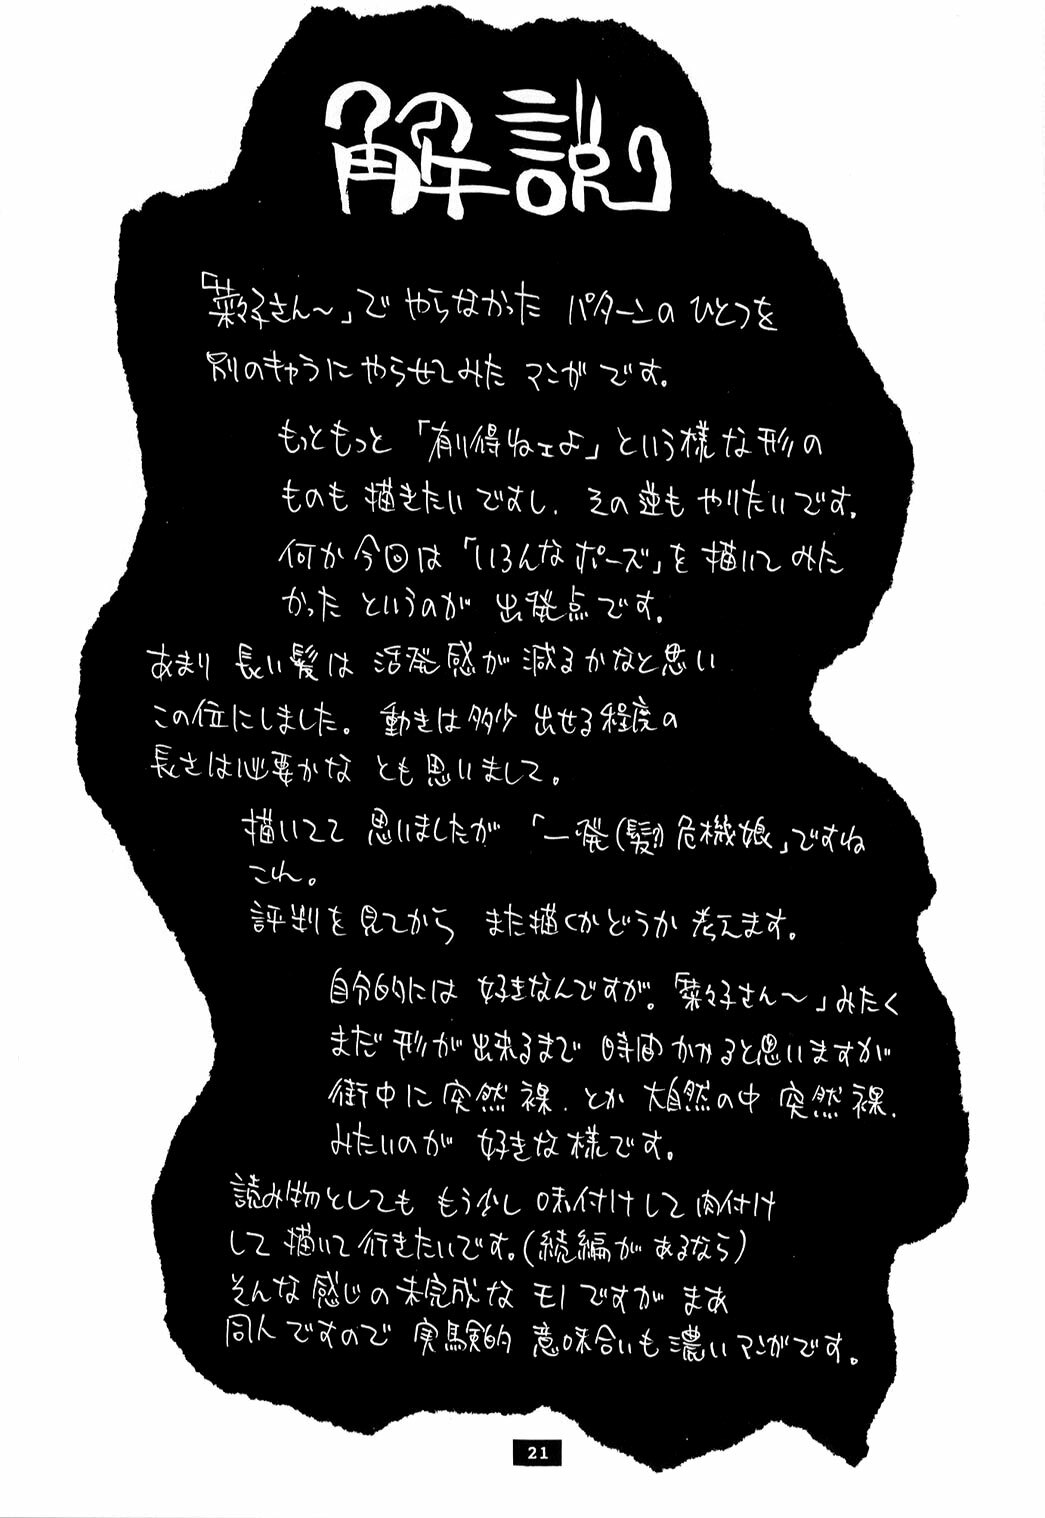 解説
「菜々子さん〜」で やらなかった パターンの ひとつを
別のキャラに やらせてみた マンガ です。
もっともっと 「有り得ねェよ」という様な形の
ものも 描きたいですし、その逆も やりたいです。
何か今回は「いろんなポーズ」を 描いて みた
かった というのが 出発点です。
あまり 長い髪は 活発感が 減るかなと思い
この位にしました。 動きは多少 出せる程度の
長さは必要かな とも思いまして。
描いてて 思いましたが 「一発(髪)危機娘」ですね
これ。
評判を見てから また描くかどうか 考えます。
自分的には 好きなんですが。「菜々子さん〜」みたく
まだ 形が出来るまで 時間かかると思いますが
街中に 突然 裸、とか 大自然の中 突然 裸、
みたいのが 好きな様です。
読み物としても もう少し 味付けして 肉付け
して 描いて 行きたいです。(続編があるなら)
そんな 感じの 未完成な モノですが まあ
同人ですので 実験的 意味合いも 濃いマンガです。
21